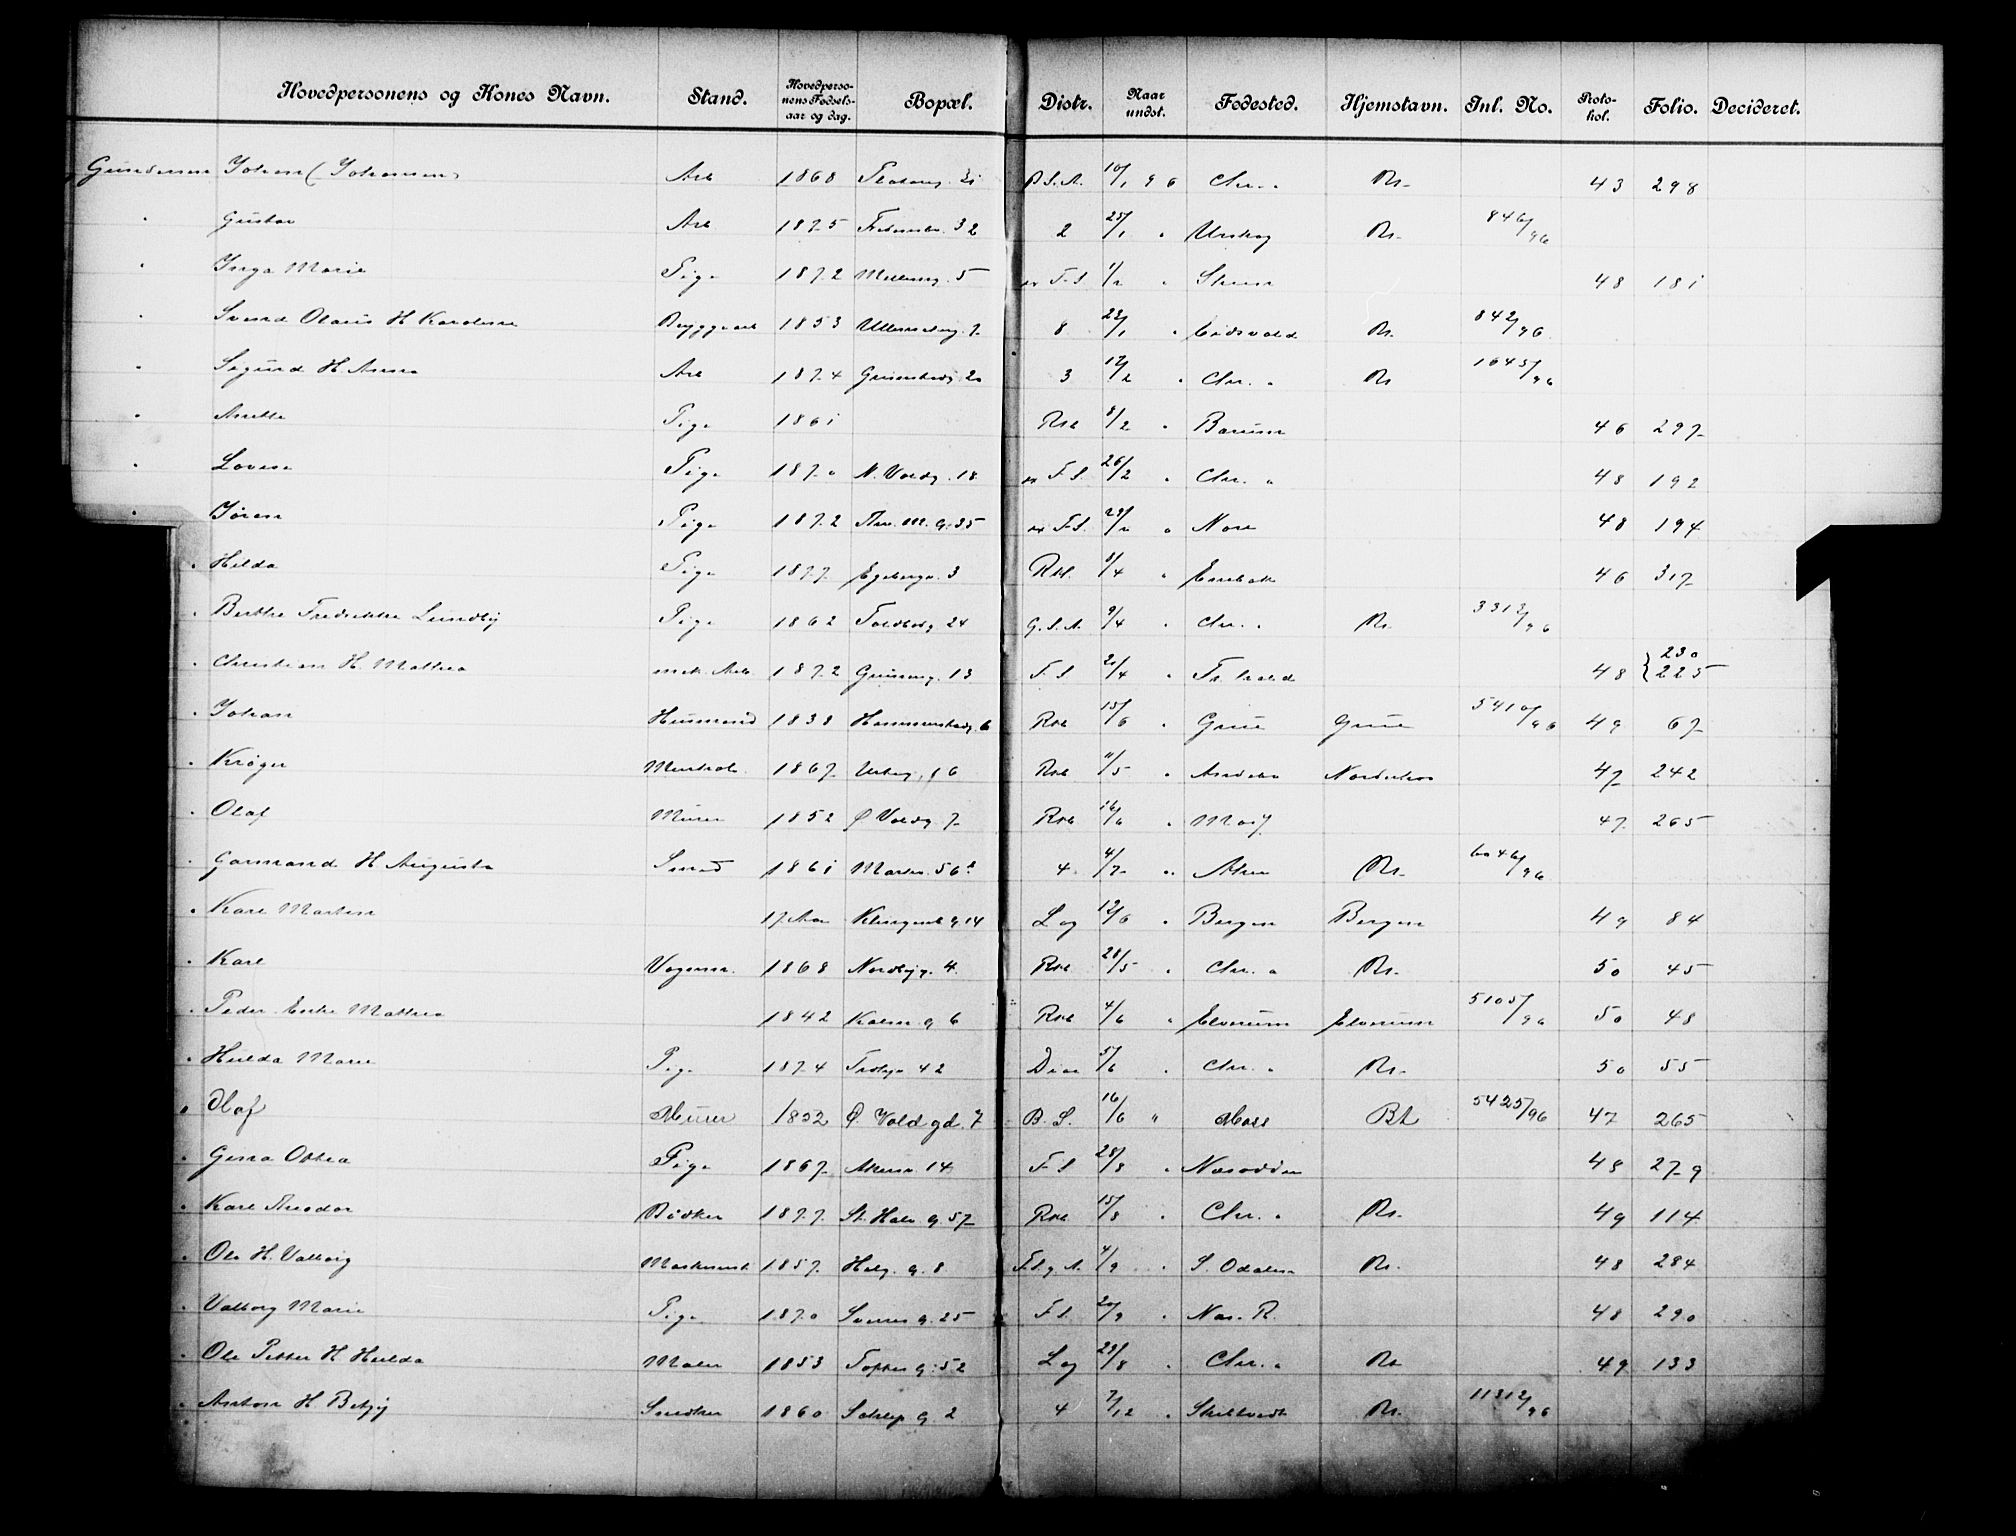 Hovedpersonens og Kones Navn. Stand. Hovedpersonens Fødselsaar og dag. Bopæl. Distr. Naar undst. Fødested. Hjemstavn. Inl. No. Protokol. Folio. Decideret.
Gundersen Johan (Johannes) Arb 1868 B.S.A. 10/1 96 Chr. " Kr. 43 298
" Gustav Arb 1875 32 2 25/1 " Urskog Kr. 846/96
" Inga Marie Pige 1872 Møllerg. 5 F.S. 1/2 " 48 181
" Svend Olaus H Karoline Bryggearb 1853 Ullevoldsvg. 7 8 22/1 " Eidsvold Kr. 842/96
" Sigurd H Anna Arb 1874 20 3 17/2 " Chr. " Kr 1645/96
" Anette Pige 1861 Rob 8/2 " Bærum 46 297
" Lovise Pige 1870 N. Voldg. 18 F.S. 26/2 " Chr. " 48 192
" Jøran Pige 1872 Thv. M. g. 35 F.S. 29/2 " Nore 48 194
" Hilda Pige 1877 Egebergv. 3 Rob. 8/4 " Enebak 46 317
" Berthe Fredrikke Lundby Pige 1862 Toldbodg 24 G.S.A. 9/4 " Chr. " Kr. 3312/96
" Christian H. Mathea mek. Arb. 1872 Grønneg. 13 F.S 21/4 " Fr.hald 48 { 230 225
" Johan Husmand 1838 Hammersborg. 6 Rob 15/6 " Grue Grue 5410/96 49 67
" Krøger 1867 Urteg. 16 Rob 11/5 " Andebo 47 242
" Olaf Murer 1852 Ø Voldg 7 Rob 16/6 " Moss 47 265
" Garmand H Augusta Smed 1861 4 4/7 " Aker Kr. 6046/96
" Karl Martin 17 Aar Klingenb g. 14 Log 12/6 " Bergen Bergen 49 84
" Karl Vognm. 1868 Nordbyg. 4. Rob 28/5 " Chr. " Kr. 50 45
" Peder Enke Mathea 1842 g 6 Rob 4/6 " Elverum Elverum 5105/96 50 48
" Hulda Marie Pige 1874 42 Diac 5/6 " Chr. " Kr. 50 55
" Olaf Murer 1852 Ø. Voldgd. 7 B.S. 16/6 " Moss 5425/96 47 265
" Gina Othea Pige 1867 Akersv 14 F.S 28/8 " Næsodden 48 279
" Karl Theodor Bødker 1877 St. Halv. g. 57 Rob 15/8 " Chr. " Kr. 49 114
" Ole H. Valborg Maskinarb. 1857 Helg. g. 8 F.S.g.A. 4/9 " S. Odalen Kr. 48 284
" Valborg Marie Pige 1870 Sverres g. 25 F.S. 20/9 " Næs. R. 48 290
" Ole Petter H Hulda Maler 1853 Toftes g. 52 Log 29/8 " Chr. " Kr 49 133
" Anton H Betzy Snedker 1860 Schlep g. 2 4 7/12 " Skibtvedt Kr. 11312/96